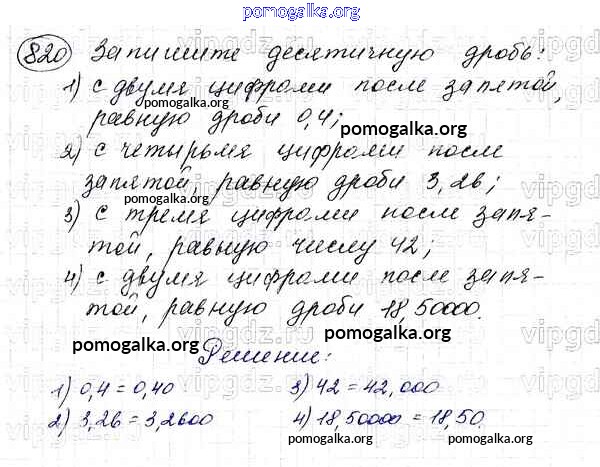 pomogalka.org
820 Запишите десятичную дробь:
1) с двумя цифрами после запятой,
равную дроби 0,4;
pomogalka.org
2) с четырьмя цифрами после
запятой, равную дроби 3,26;
pomogalka.org
3) с тремя цифрами после запя-
той, равную числу 42;
pomogalka.org
4) с двумя цифрами после запя-
той, равную дроби 18,50000.
pomogalka.org
pomogalka.org
Решение:
1) 0,4 = 0,40 3) 42 = 42,000
2) 3,26 = 3,2600 4) 18,50000 = 18,50.
pomogalka.org
pomogalka.org